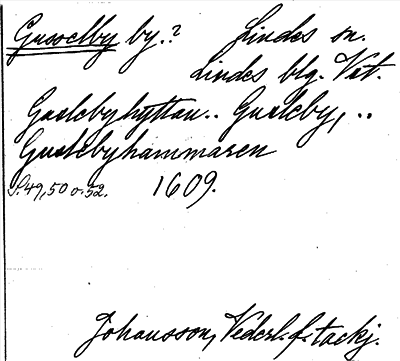 Gusselby by.? Lindes sn.
Lindes blg. Vst.
Guslebyhyttan.. Gusleby, ..
Guslebyhammaren
S. 49, 50 o. 52. 1609.
Johansson, Vederl. f. tackj.